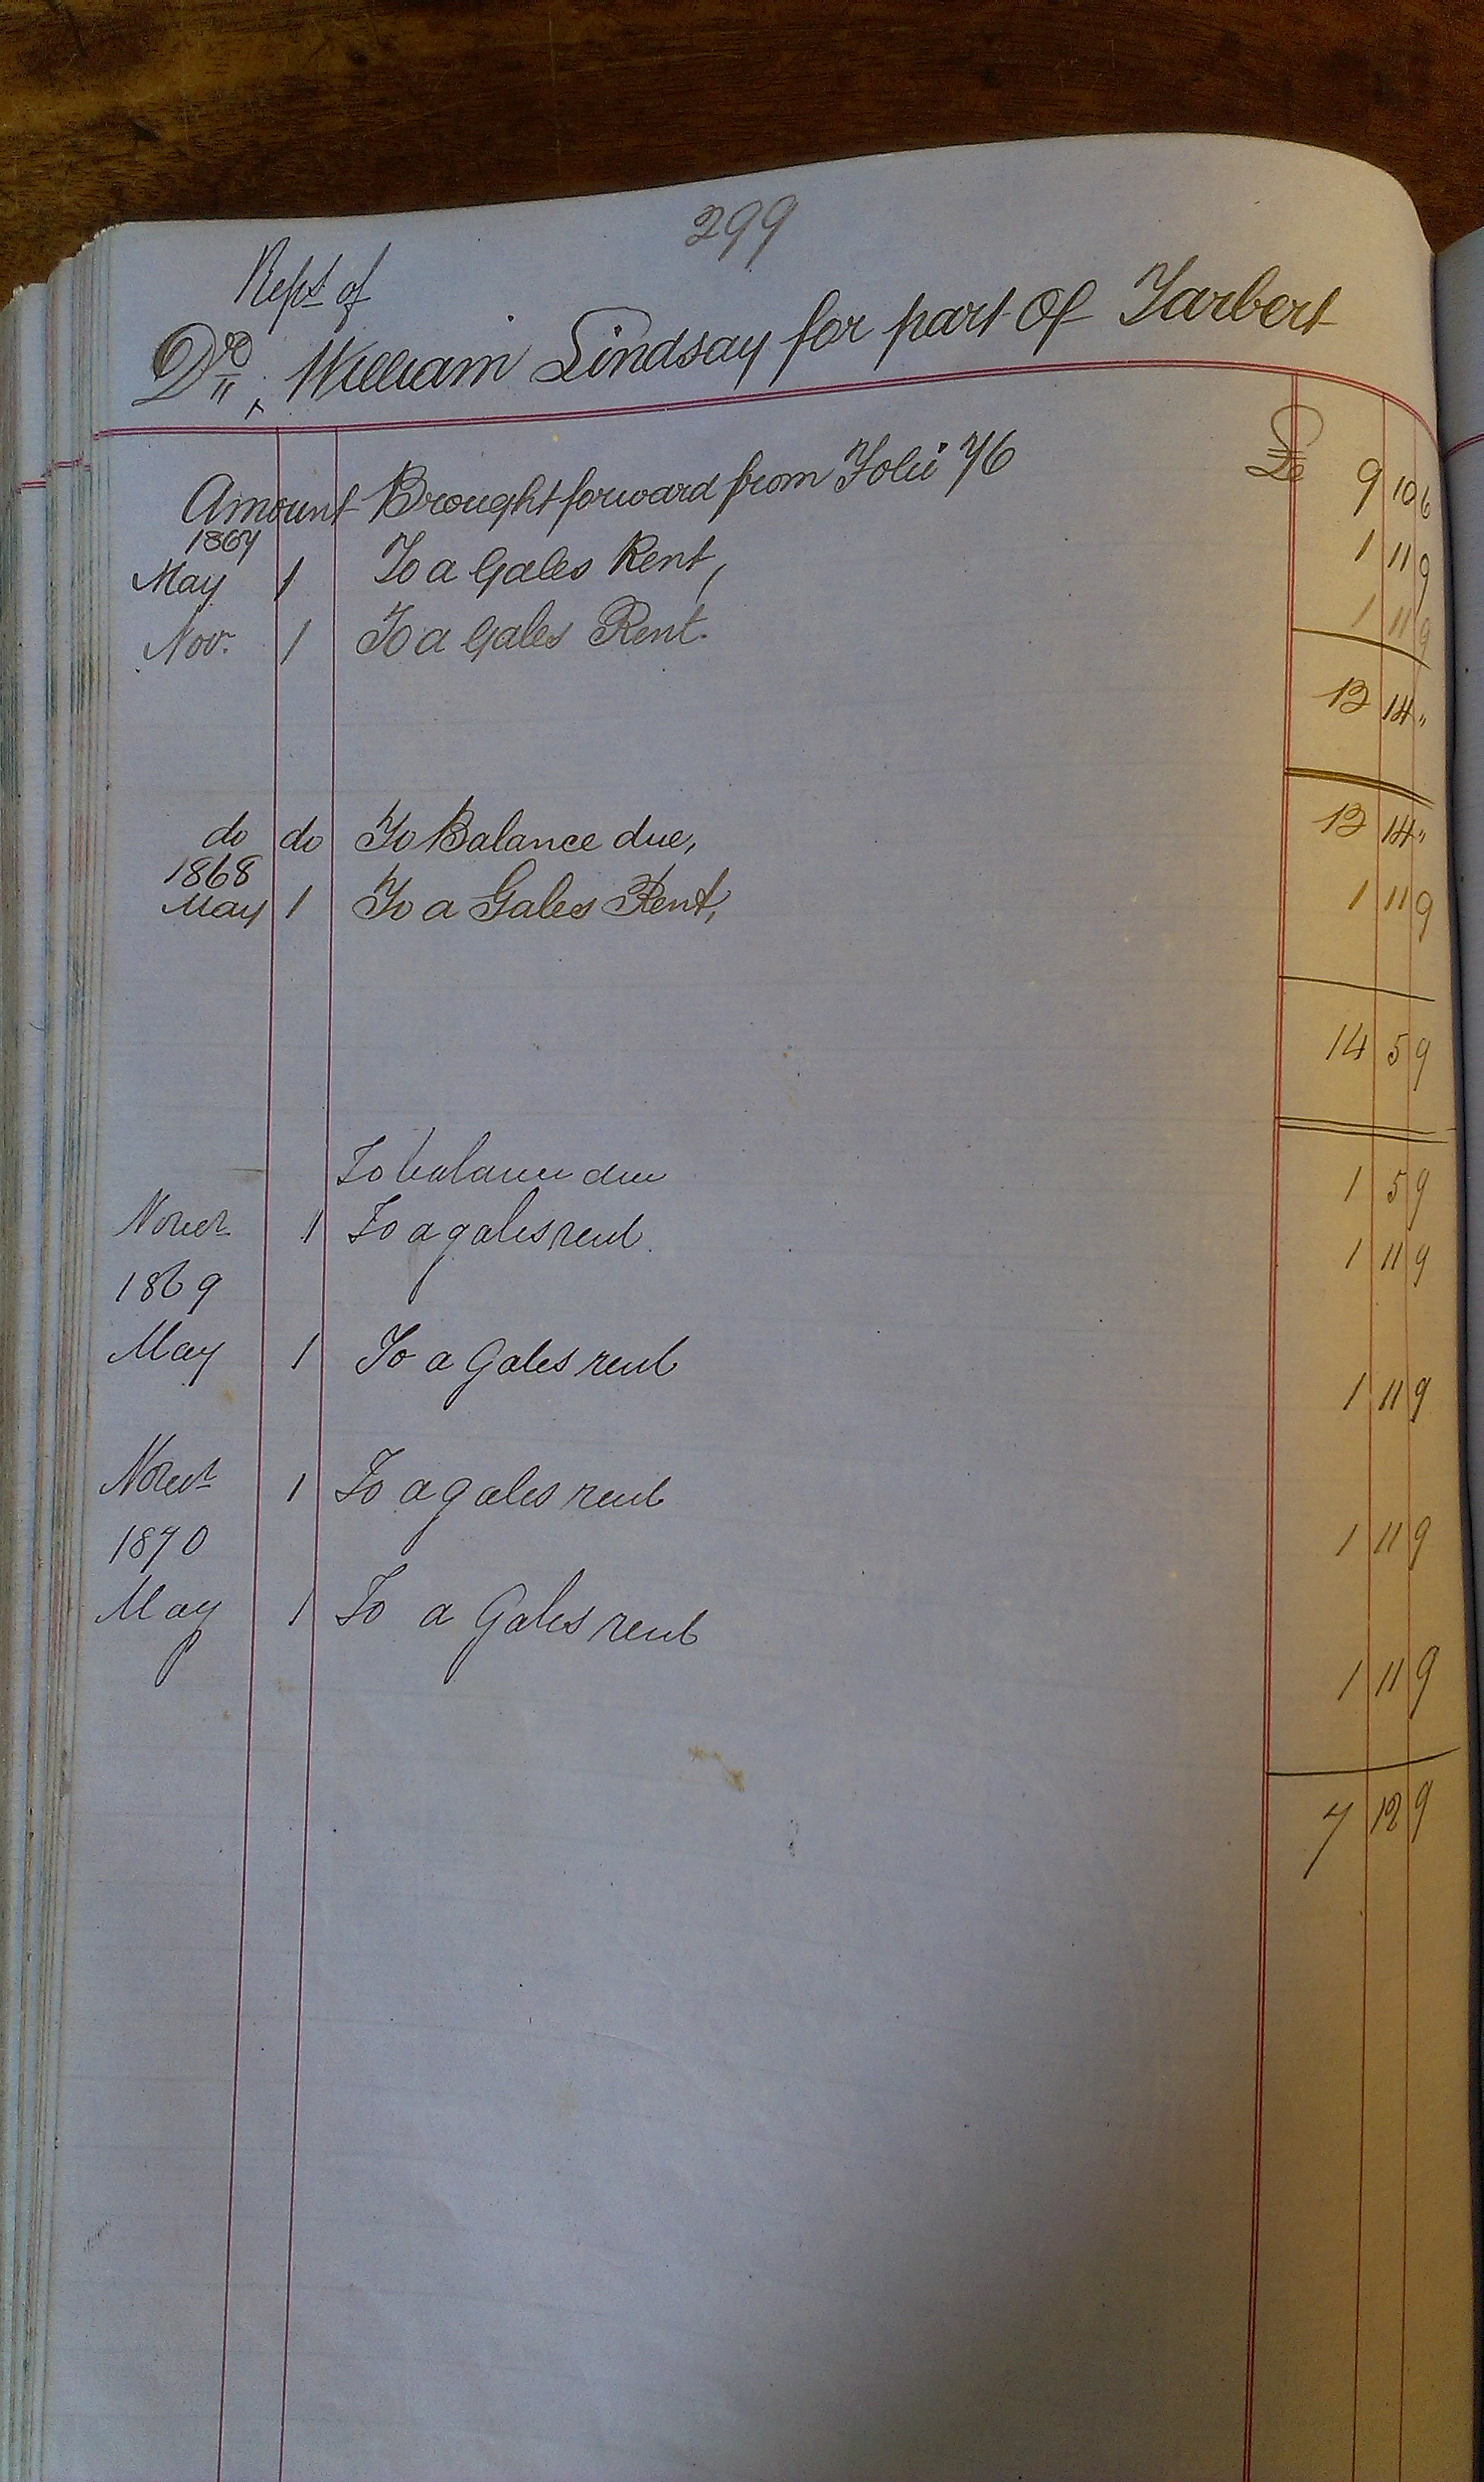 299
Reps of
Dr, William Lindsay for part of Tarbert
Amount Brought forward from Folio 76 £ 9 10 6
1867
May 1 To a Gales Rent, 1 11 9
Nov. 1 To a Gales Rent. 1 11 9
12 14 "
do do To Balance due, 12 14 "
1868
May 1 To a Gales Rent, 1 11 9
14 5 9
To balance due 1 5 9
Novr 1 To a gales rent 1 11 9
1869
May 1 To a Gales rent 1 11 9
Novr 1 To a gales rent 1 11 9
1870
May 1 To a Gales rent 1 11 9
7 12 9